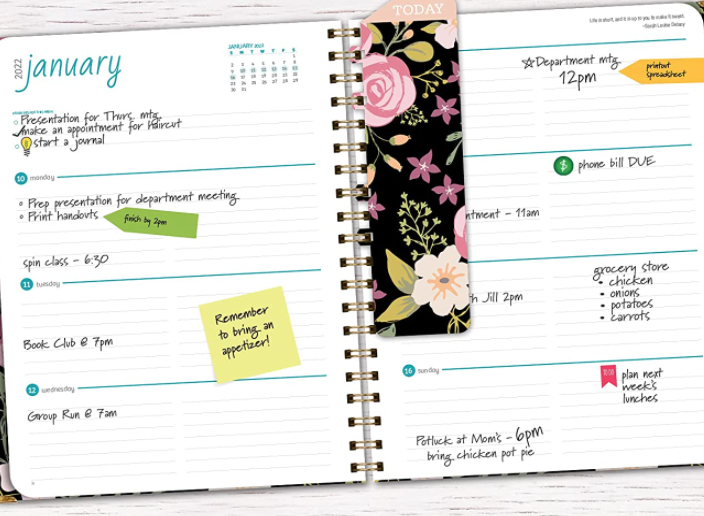 2022
january
JANUARY 2022
S M T W T F S
Presentation for Thurs. mtg.
make an appointment for haircut
start a journal
10 monday
Prep presentation for department meeting.
Print handouts
finish by 2pm
spin class - 6:30
11 tuesday
Remember
to bring an
appetizer!
Book Club @ 7pm
12 wednesday
Group Run @ 7am
TODAY
Department mtg
12pm
printout
spreadsheet
$
phone bill DUE
ntment - 11am
h Jill 2pm
grocery store
• chicken
• onions
• potatoes
• carrots
16 sunday
plan next
week's
lunches
Potluck at Mom's - 6pm
bring chicken pot pie